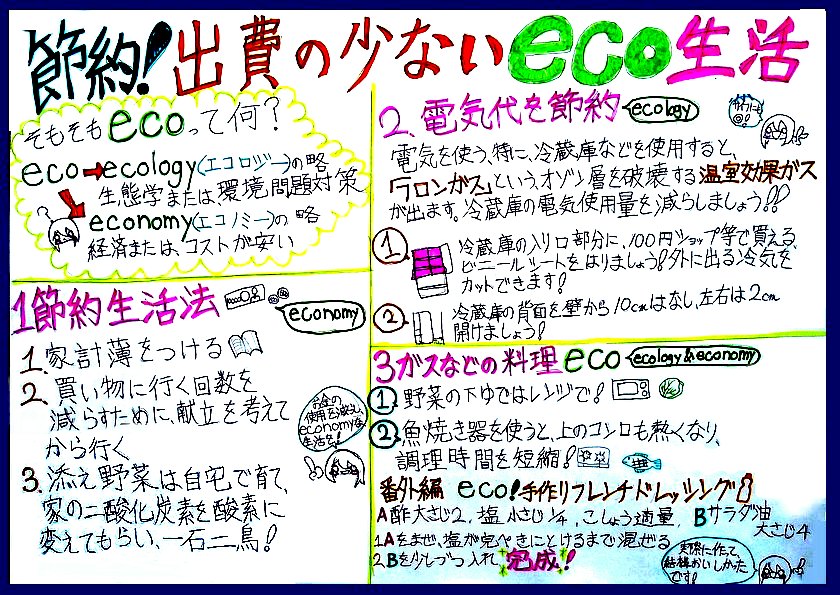 節約!出費の少ないeco生活
そもそもecoって何?
eco→ecology(エコロジー)の略
生態学または、環境問題対策
economy(エコノミー)の略
経済または、コストが安い
1節約生活法
economy
1.家計簿をつける
2.買い物に行く回数を
減らすために、献立を考えて
から行く
3.添え野菜は自宅で育て、
家の二酸化炭素を酸素に
変えてもらい、一石二鳥!
お金の
使用を減らし、
economyな
生活を!
2.電気代を節約
ecology
電気を使う、特に、冷蔵庫などを使用すると、
「フロンガス」という、オゾン層を破壊する温室効果ガス
が出ます。冷蔵庫の電気使用量を減らしましょう!!
①冷蔵庫の入り口部分に、100円ショップ等で買える
ビニールシートをはりましょう!外に出る冷気を
カットできます!
②冷蔵庫の背面を壁から10cmはなし、左右は2cm
開けましょう!
3ガスなどの料理eco
ecology&economy
①野菜の下ゆではレンジで!
②魚焼き器を使うと、上のコンロも熱くなり、
調理時間を短縮!
番外編 eco!手作りフレンチドレッシング
A酢大さじ2,塩小さじ1/4,こしょう適量, Bサラダ油
大さじ4
1Aをまぜ、塩が完ぺきにとけるまで混ぜる
2Bを少しづつ入れ完成!
実際に作って、
結構おいしかった
です!